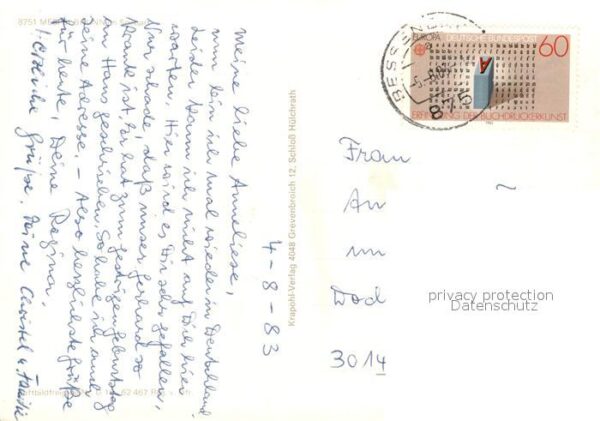 8751 ME
Meine liebe Anneliese,
nun bin ich mal wieder in Deutschland
leider kann ich nicht auf Dich hier
warten. Hier wird es Dir sehr gefallen,
Nur schade, daß unser Gerhard so
krank ist, Er hat zum gestrigen Geburtstag
an Hans geschrieben, So habe ich auch
Deine Adresse. - Also herzlichste Grüße
für heute, Deine Regina.
! Grüße, Deine Christel u.
4-8-83
Krapohl-Verlag 4048 Grevenbroich 12, Schloß Hülchrath
EUROPA
DEUTSCHE BUNDESPOST
60
ERFINDUNG DER BUCHDRUCKERKUNST
BESSENB
875
8
Frau
An
im
Dod
3014
privacy protection
Datenschutz